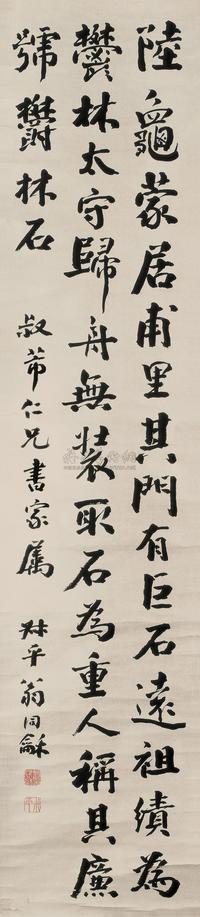 陸龜蒙居甫里其門有巨石遠祖績為
鬱林太守歸舟無裝取石為重人稱其廉
號鬱林石
叔芾仁兄書家屬
叔平翁同龢